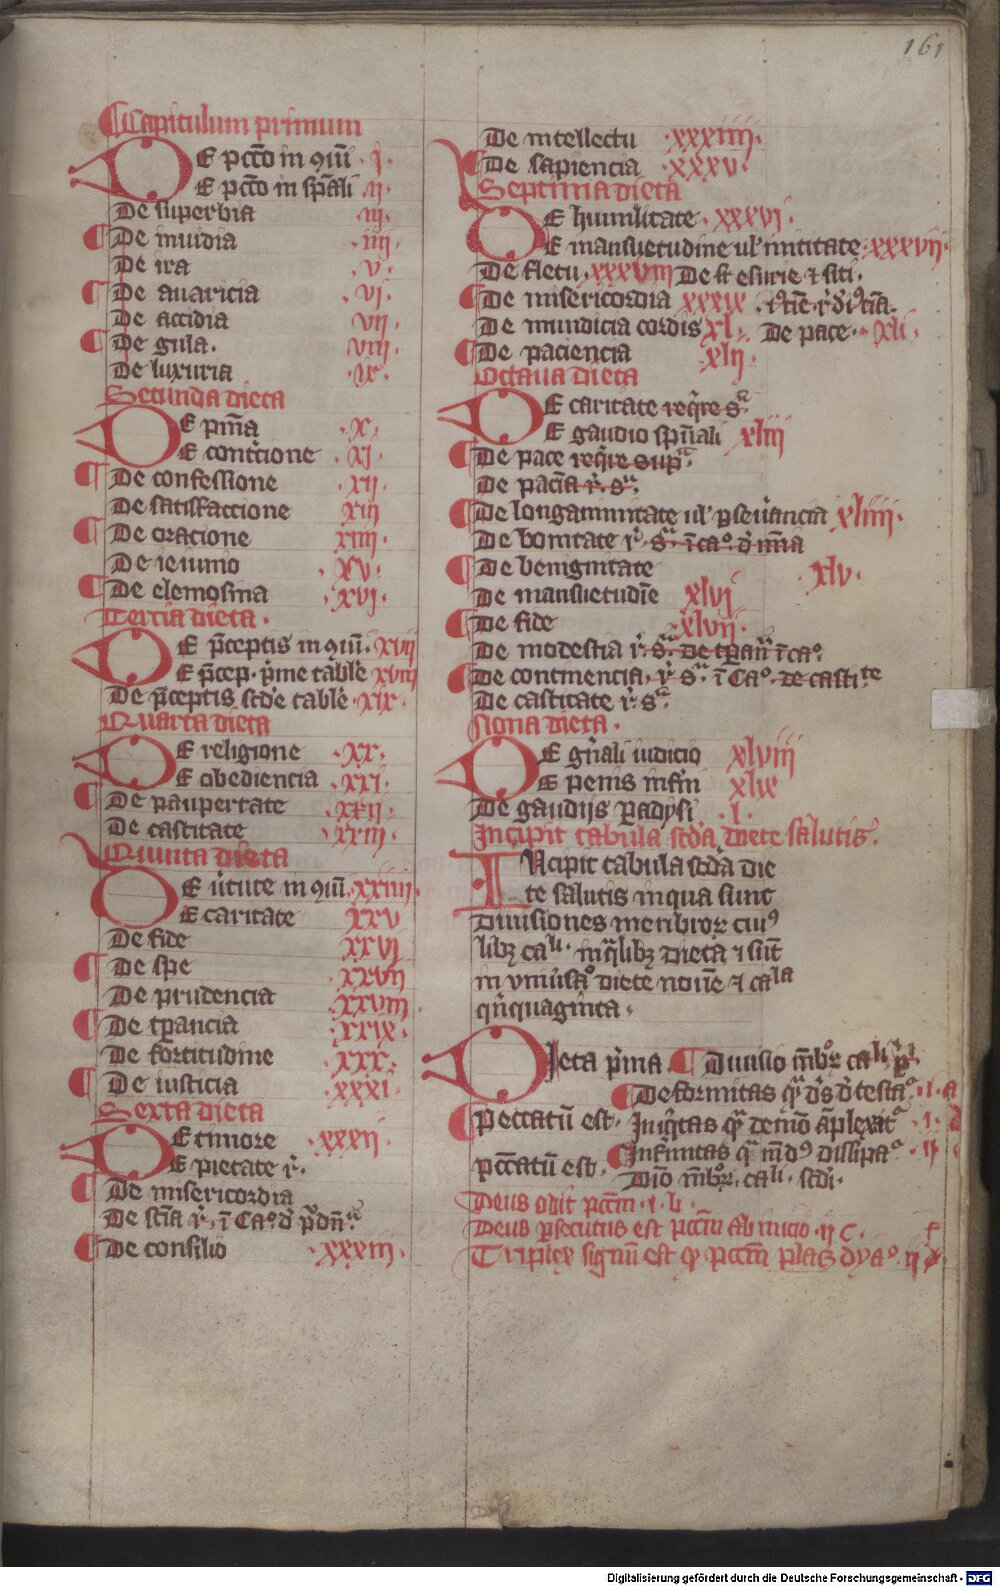 161
Capitulum primum
DE pctō in 9iūi · j ·
E pctō in sp̄ali ij ·
De superbia · iij ·
De inuidia · iiij ·
De ira · v ·
De auaricia · vj ·
De accidia vij ·
De gula · viij ·
De luxuria · ix ·
Secunda dieta
DE pnīa · x ·
E contr̄cione · xj ·
De confessione · xij ·
De satisfaccione xiij
De oracione xiiij
De ieiunio · xv ·
De elemosina · xvj ·
Tercia dieta ·
DE p̄ceptis in 9iūi · xvij
E p̄cep · p̄me table xviij
De p̄ceptis scd̄e table · xix ·
Quarta dieta
DE religione · xx ·
E obediencia · xxj ·
De paupertate · xxij ·
De castitate · xxiij ·
Quinta dieta
DE ūtute in 9iūi · xxiiij ·
E caritate xxv
De fide xxvj
De spe xxvij
De prudencia xxviij
De tp̄ancia xxix ·
De fortitudine xxx ·
De iusticia xxxj ·
Sexta dieta
DE timore · xxxij ·
E pietate r̄ ·
De misericordia
De scīa r̄ · ī Ca° d̄ p̄dn̄ᵃ
De consilio · xxxiij ·
De intellectu · xxxiiij ·
De sapiencia · xxxv ·
Septima dieta
DE humilitate · xxxvj ·
E mansuetudine ul' mititate · xxxvij ·
De fletu · xxxviij De esurie ⁊ siti ·
De misericordia xxxix
De mundicia cordis xl · De pace · xli ·
De paciencia xlij
Octaua dieta
DE caritate req̄re sᵃ
E gaudio sp̄uali xliij
De pace req̄re supᵃ ·
De pacīa r̄ · sᵃ ·
De longanimitate ul' p̱seūancia xliiij ·
De bonitate r̄ · sᵃ · ī ca° · d̄ mīa
De benignitate · xlv ·
De mansuetudīe xlvj
De fide · xlvij ·
De modestia r̄ · sᵃ · De tp̄an̄ ī ca° ·
De continencia · r̄ · sᵃ · ī Ca° · de castiᵗᵉ
De castitate r̄ · sᵃ ·
Nona dieta ·
DE gn̄ali iudicio xlviij
E penis infīn xlix
De gaudijs p̱adysi · l ·
Incipit tabula scd̄a diete salutis ·
INcipit tabula scd̄a die
te salutis in qua sunt
Diuisiones membroꝝ cui9
libꝫ caˡⁱ · in q̄libꝫ dieta ⁊ sūt
in vniūsa° diete nouē ⁊ caˡᵃ
qn̄quaginta ·
DIeta p̄ma · Diuisio mb̄oꝝ caˡⁱ pⁱ
Deformitas qᵃ d̄s d̄testaᵗ · i · a
Peccatū est · Iniq̄tas qᵃ demō āplexat · i · d
pctātū est · Infīmitas qᵃ mūd9 dissipaᵗ · ij ·
Diō mb̄oꝝ · caˡⁱ · scd̄i ·
Deus odit pctm̄ · i · b ·
Deus p̱secutus est pctm̄ ab inicio · ij c · f
Triplex signū est qȝ pctm̄ p̱las dya° · ij d ·
Digitalisierung gefördert durch die Deutsche Forschungsgemeinschaft - DFG